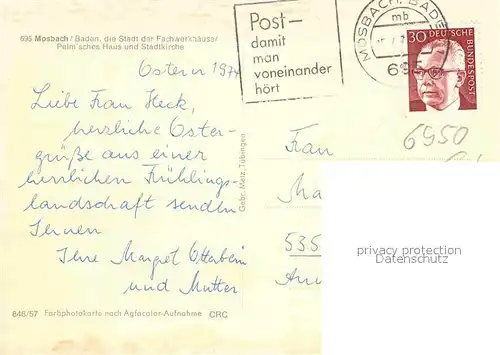 695 Mosbach / Baden, die Stadt der Fachwerkhäuser
Palm'sches Haus und Stadtkirche
Post-
damit
man
voneinander
hört
MOSBACH, BADEN
mb
695
30 DEUTSCHE
BUNDESPOST
Ostern 1974
Liebe Frau Heck,
herrliche Oster-
grüße aus einer
herrlichen Frühlings-
landschaft senden
Ihnen
Ihre Margret Otterbein
und Mutter
Gebr. Metz, Tübingen
6950
Frau
Ma
535
privacy protection
Datenschutz
846/57 Farbphotokarte nach Agfacolor-Aufnahme CRC